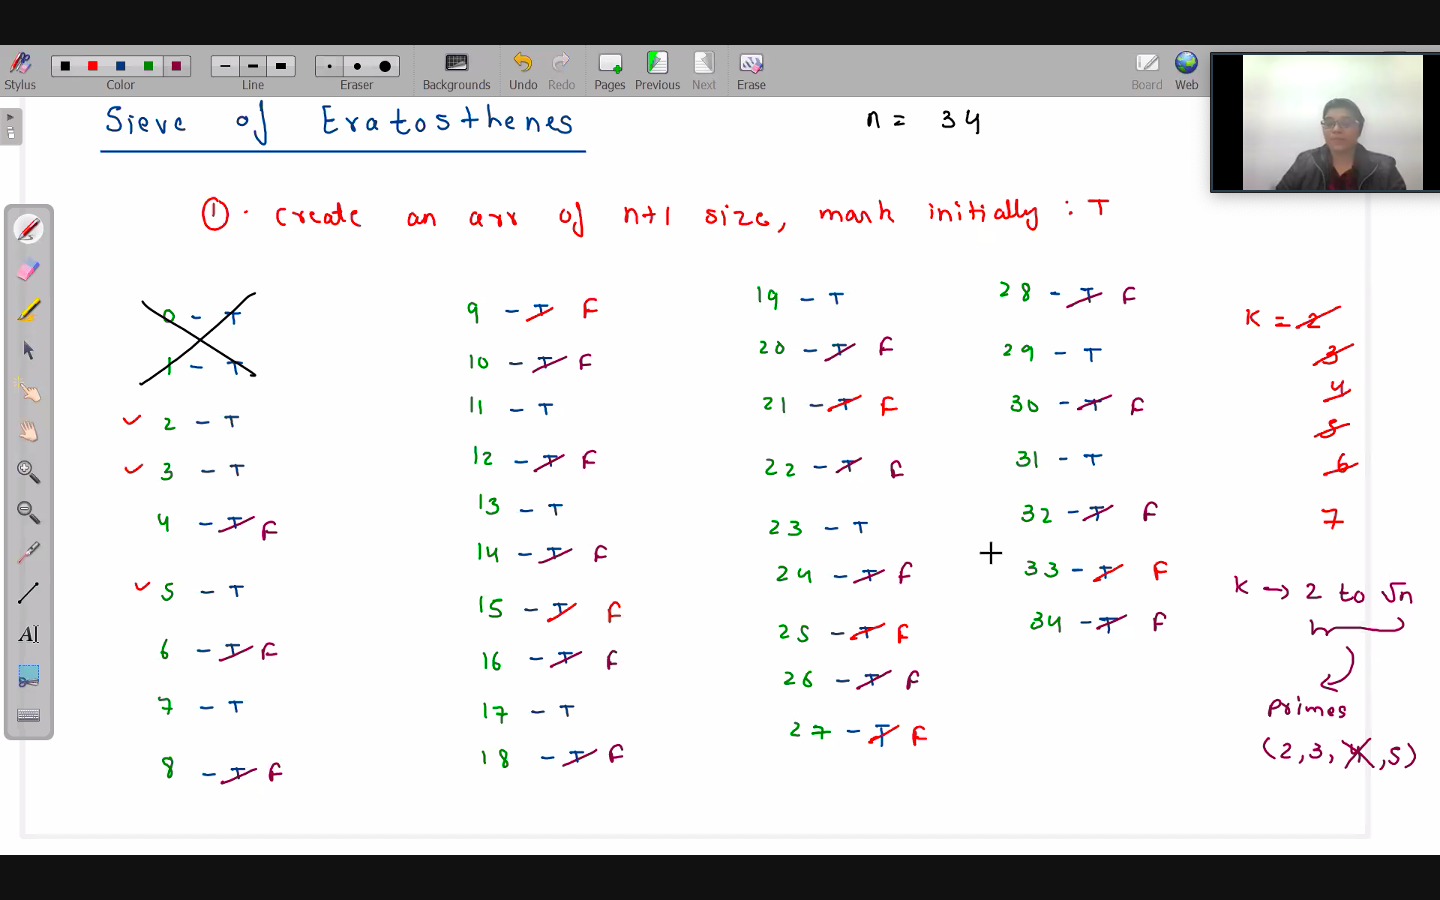 Stylus
Color
Line
Eraser
Backgrounds
Undo
Redo
Pages
Previous
Next
Erase
Board
Web
Sieve of Eratosthenes
n = 34
① . create an arr of n+1 size, mark initially : T
0 - T
1 - T
2 - T
3 - T
4 - T F
5 - T
6 - T F
7 - T
8 - T F
9 - T F
10 - T F
11 - T
12 - T F
13 - T
14 - T F
15 - T F
16 - T F
17 - T
18 - T F
19 - T
20 - T F
21 - T F
22 - T F
23 - T
24 - T F
25 - T F
26 - T F
27 - T F
28 - T F
29 - T
30 - T F
31 - T
32 - T F
33 - T F
34 - T F
K = 2
3
4
5
6
7
K → 2 to √n
Primes
(2,3,4,5)
AI